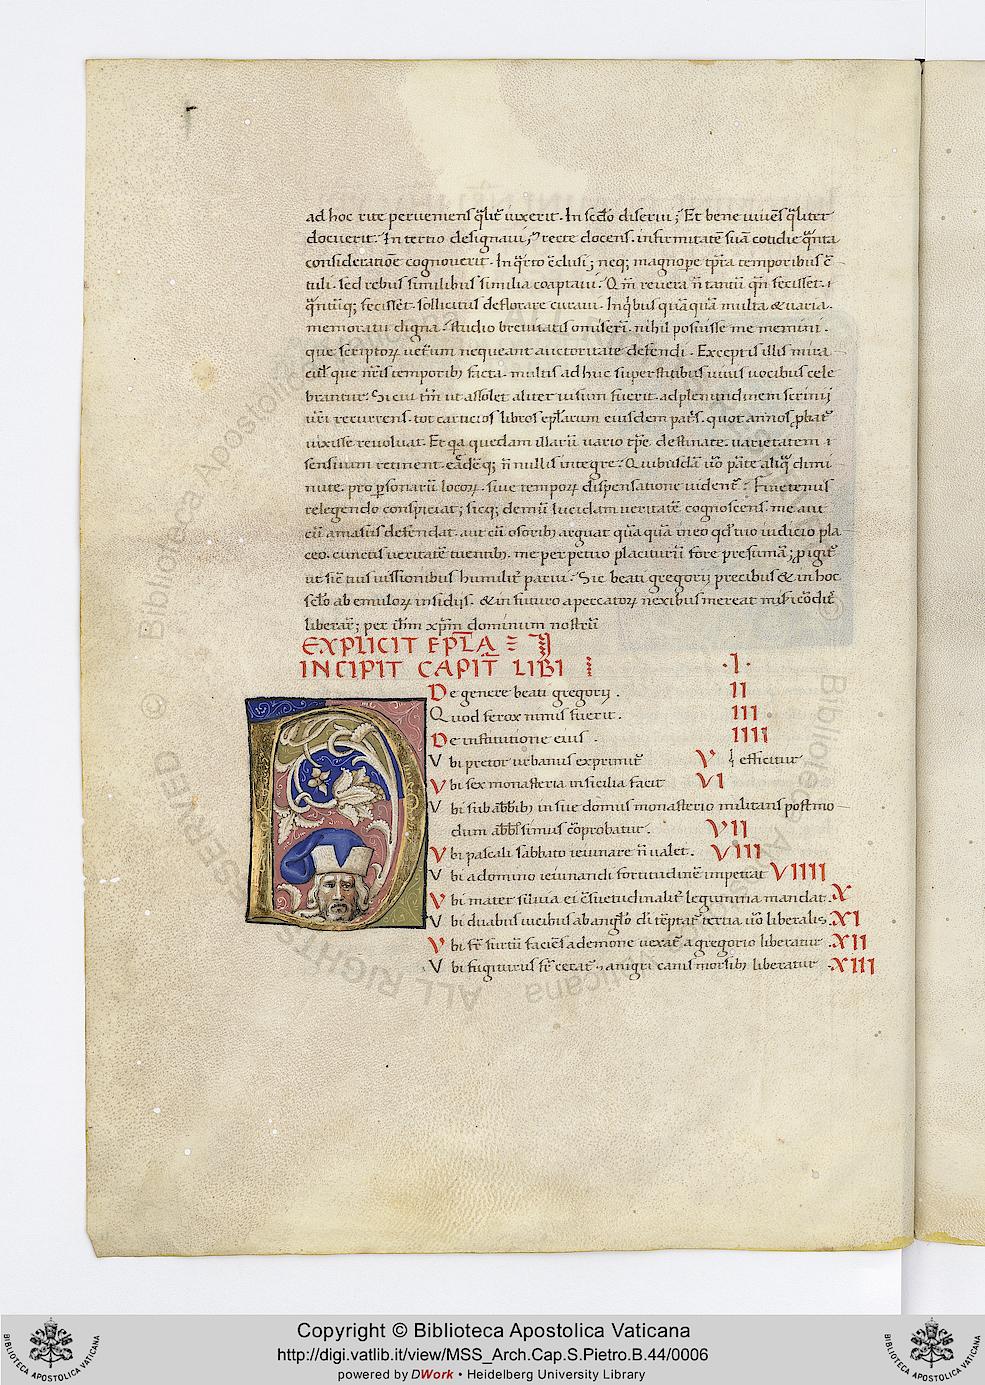 ad hoc rite perveniens qͣlit̃ vixerit. In scḋo diserui; Et bene vivẽs qͣliter
docuerit. In tertio designavi; recte docens. infirmitatẽ suã cotidie qͣnta
consideratiõe cognoverit. In qͣrto c̃clusi; neq; magnope tp̃ra temporibus c̃
tuli. sed rebus similibus similia coaptavi. Qm̃ revera ñ tantũ qñ fecisset.
qͣntũq; fecisset. sollicitus deflorare curavi. In qͥbus quãquã multa & varia.
memoratu digna. studio brevitatis omiserĩ. nihil posuisse me memini.
que scriptoꝝ vetũm nequeant auctoritate defendi. Exceptis illis mira
cul̃ que nr̃is temporibꝫ facta. multis ad huc superstitibus vivis vocibus cele
brantur. Si cui tm̃ ut assolet aliter visum fuerit. ad plenitudinem scrinij
vr̃i recurrens. tot cartucios libros epl̃arum eiusdem patͥs. quot annos ꝓbatͬ
vixisse revolvat. Et qa quedam illarũ vario tp̃e destinate. varietatem
sensuum retinent. eãdẽq; ñ nullis integre. Quibusdã v̊o p̃ate aliqͣ dimi
nute. pro ꝑsonarũ locoꝝ. sive tempoꝝ dispensatione videntͬ. Finetenus
relegendo conspiciat; sicq; demũ lucidam veritatẽ cognoscens. me aut
cũ amasiis defendat. aut cũ osoribꝫ arguat quã quã meo qd̃ tuo iudicio pla
ceo. cunctis veritatẽ tuentibꝫ. me perpetuo placiturũ fore presumã; ꝓ igitͬ
ut sic tuis iussionibus humilit̃ parui. Sic beati gregorij precibus & in hoc
scl̃o ab emuloꝝ insidijs. & in futuro a peccatoꝝ nexibus merear misͥcõdit̃
liberarͥ; per ih̃m xp̃m dominum nostrũ
EXPLICIT EPL̃A
INCIPIT CAPIT̃ LIBI ·I·
De genere beati gregorij. II
Quod ferox nimis fuerit. III
De institutione eius. IIII
Vbi pretor urbanus exprimitͬ V efficitur
Vbi sex monasteria in sicilia facit VI
Vbi sub abb̃ibꝫ in sue domus monasterio militans postmo
dum abb̃ssimus cõprobatur. VII
Vbi pascali sabbato ieiunare ñ valet. VIII
Vbi a domino ieiunandi fortitudinẽ impetrat VIIII
Vbi mater silvia ei c̃suetudinalit̃ legumina mandat. X
Vbi duabus vicibus ab angl̃o tertia v̊o liberalis. XI
Vbi fr̃ furtũ faciẽs a demone vexatͬ a gregorio liberatur XII
Vbi fugiturus fr̃ a nigri canis morsibꝫ liberatur XIII
Copyright © Biblioteca Apostolica Vaticana
http://digi.vatlib.it/view/MSS_Arch.Cap.S.Pietro.B.44/0006
powered by DWork • Heidelberg University Library
BIBLIOTECA APOSTOLICA VATICANA
BIBLIOTECA APOSTOLICA VATICANA